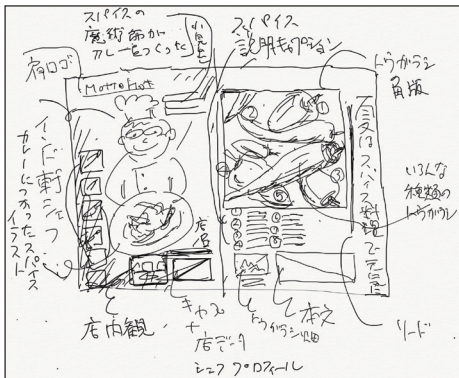 スパイスの
魔術師が
カレーをつくった
スパイス
説明キャプション
トウガラシ
角版
Motto Hot
インド軒シェフ
カレーにつかったスパイス
イラスト
夏はスパイス料理で元気に
いろんな
種類の
トウガラシ
① ② ③ ⑤
店内観
キャプ
+
店データ
トウガラシ畑
本文
リード
シェフ プロフィール